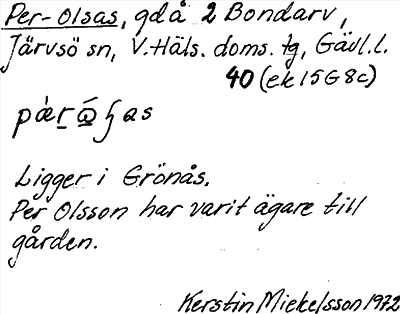 Per-Olsas, gdå 2 Bondarv,
Järvsö sn, V. Häls. doms. tg, Gävl. l.
40 (ek 15G8c)
Ligger i Grönås.
Per Olsson har varit ägare till
gården.
Kerstin Mickelsson 1972